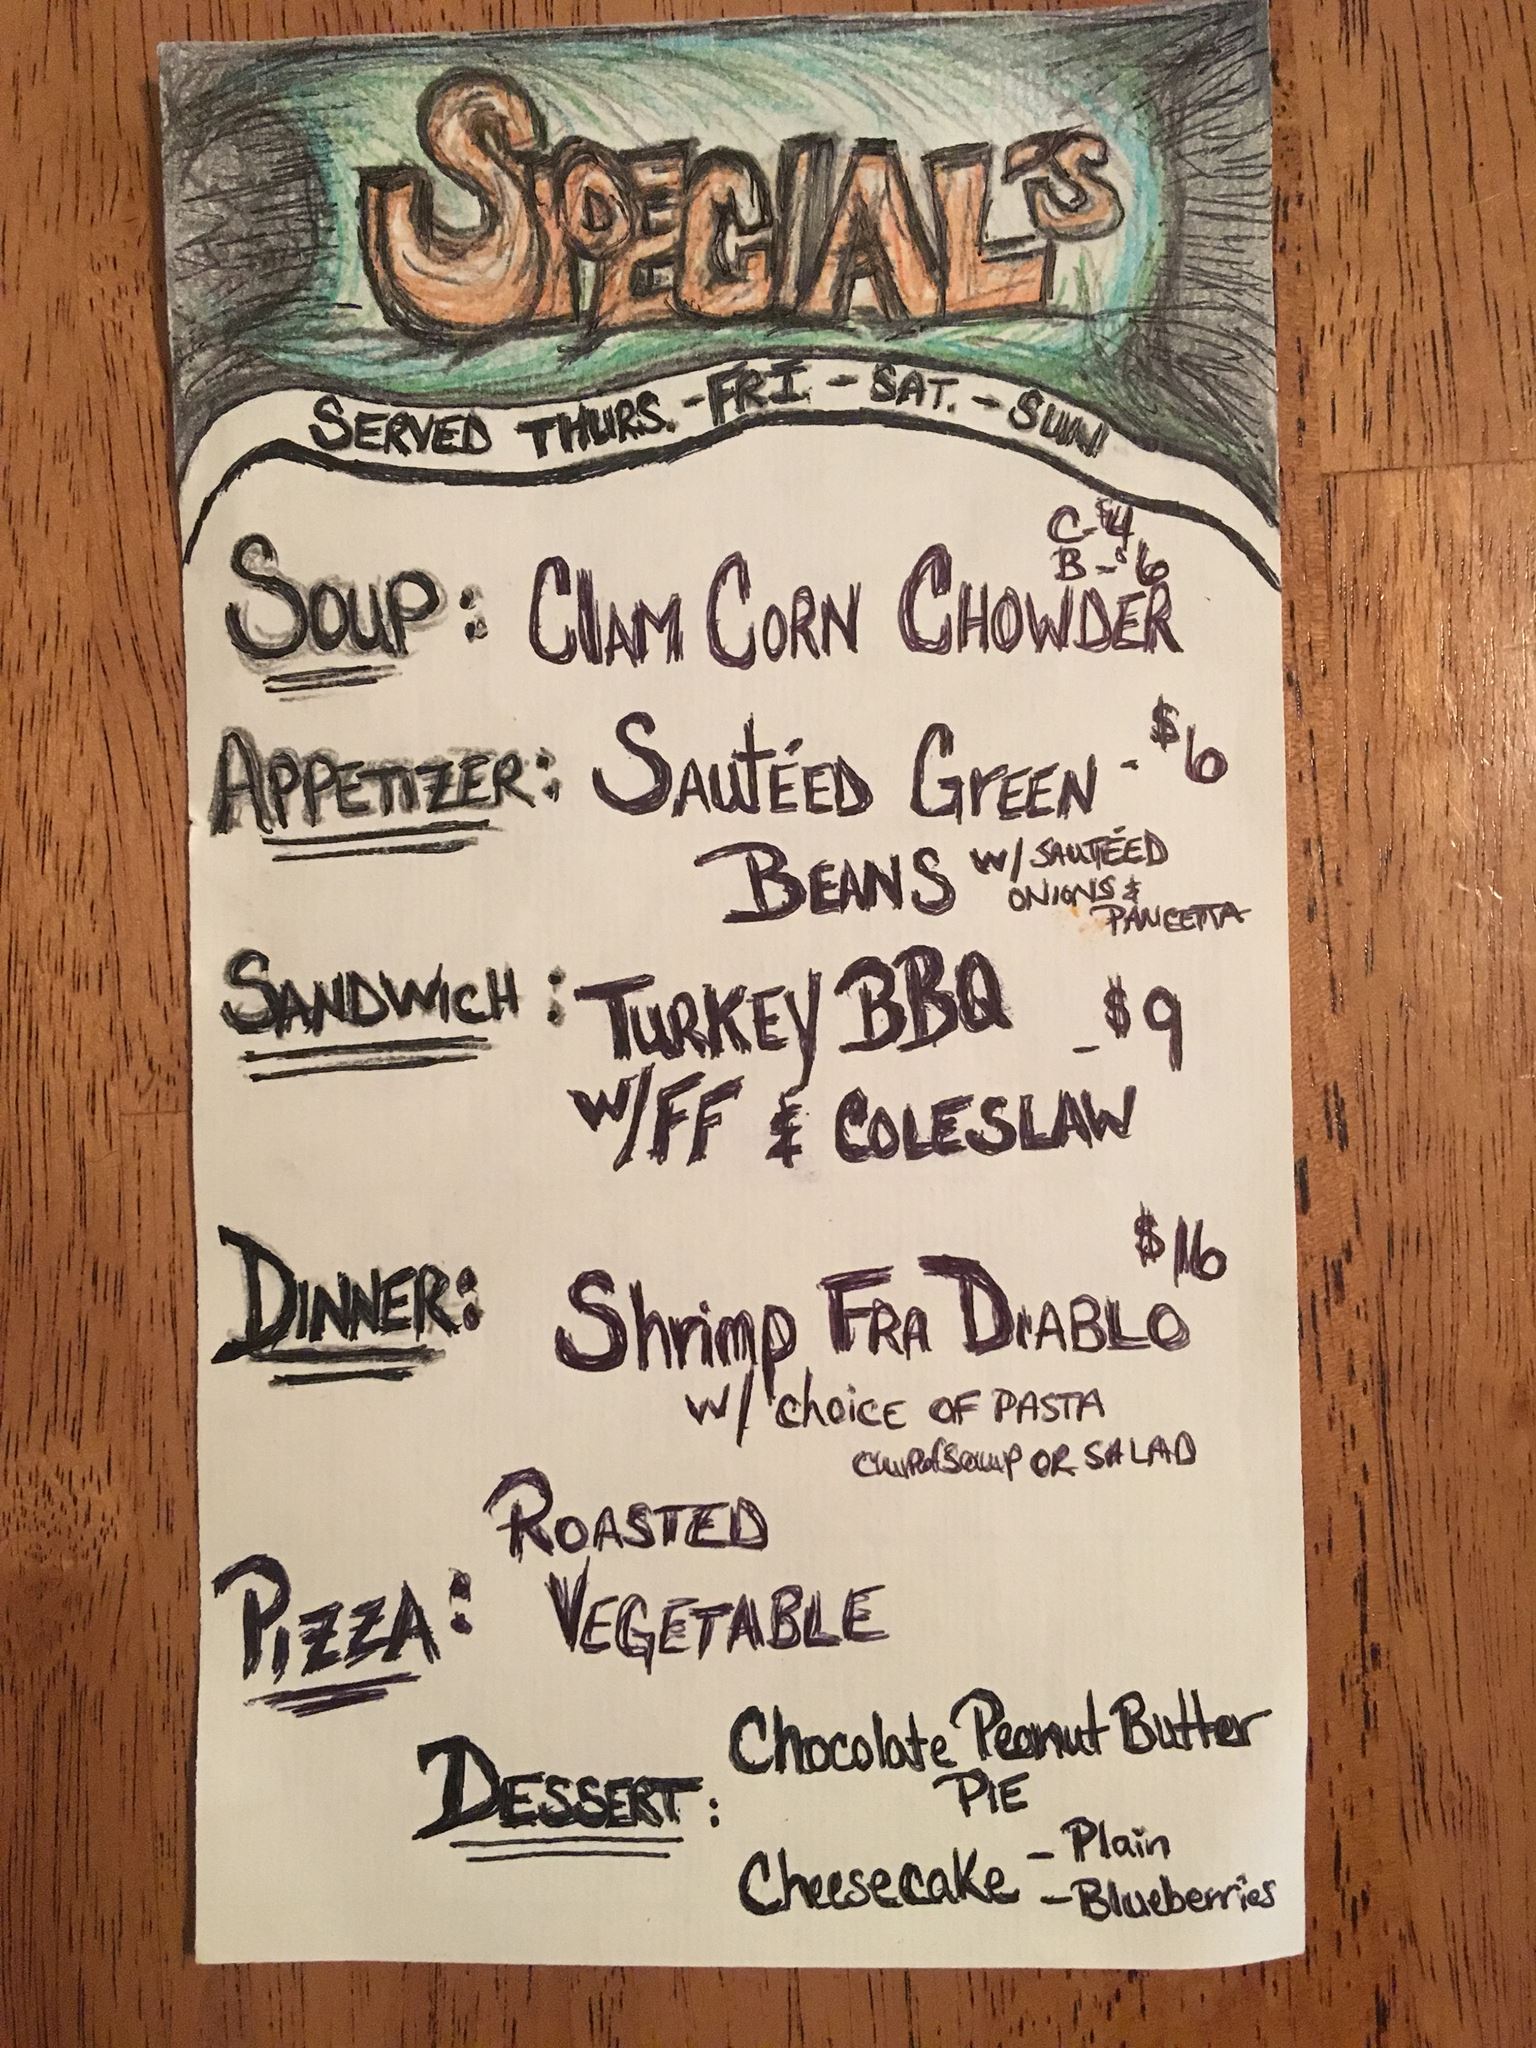 SPECIAL'S
SERVED THURS. - FRI. - SAT. - SUN
C-$4
B-$6
SOUP: ClAM CORN CHOWDER
APPETIZER: SAUTÉED GrEEN - $6
BEANS w/ SAUTÉED
ONIONS &
PANCETTA
SANDWicH: TURKEY BBQ - $9
W/FF & COLESLAW
$16
DINNER: Shrimp FRA DiABLO
w/ choicE OF PASTA
cup of Soup OR SALAD
ROASTED
PIZZA: VEGETABLE
Chocolate Peanut Butter
PIE
DESSERT:
Cheesecake - Plain
- Blueberries